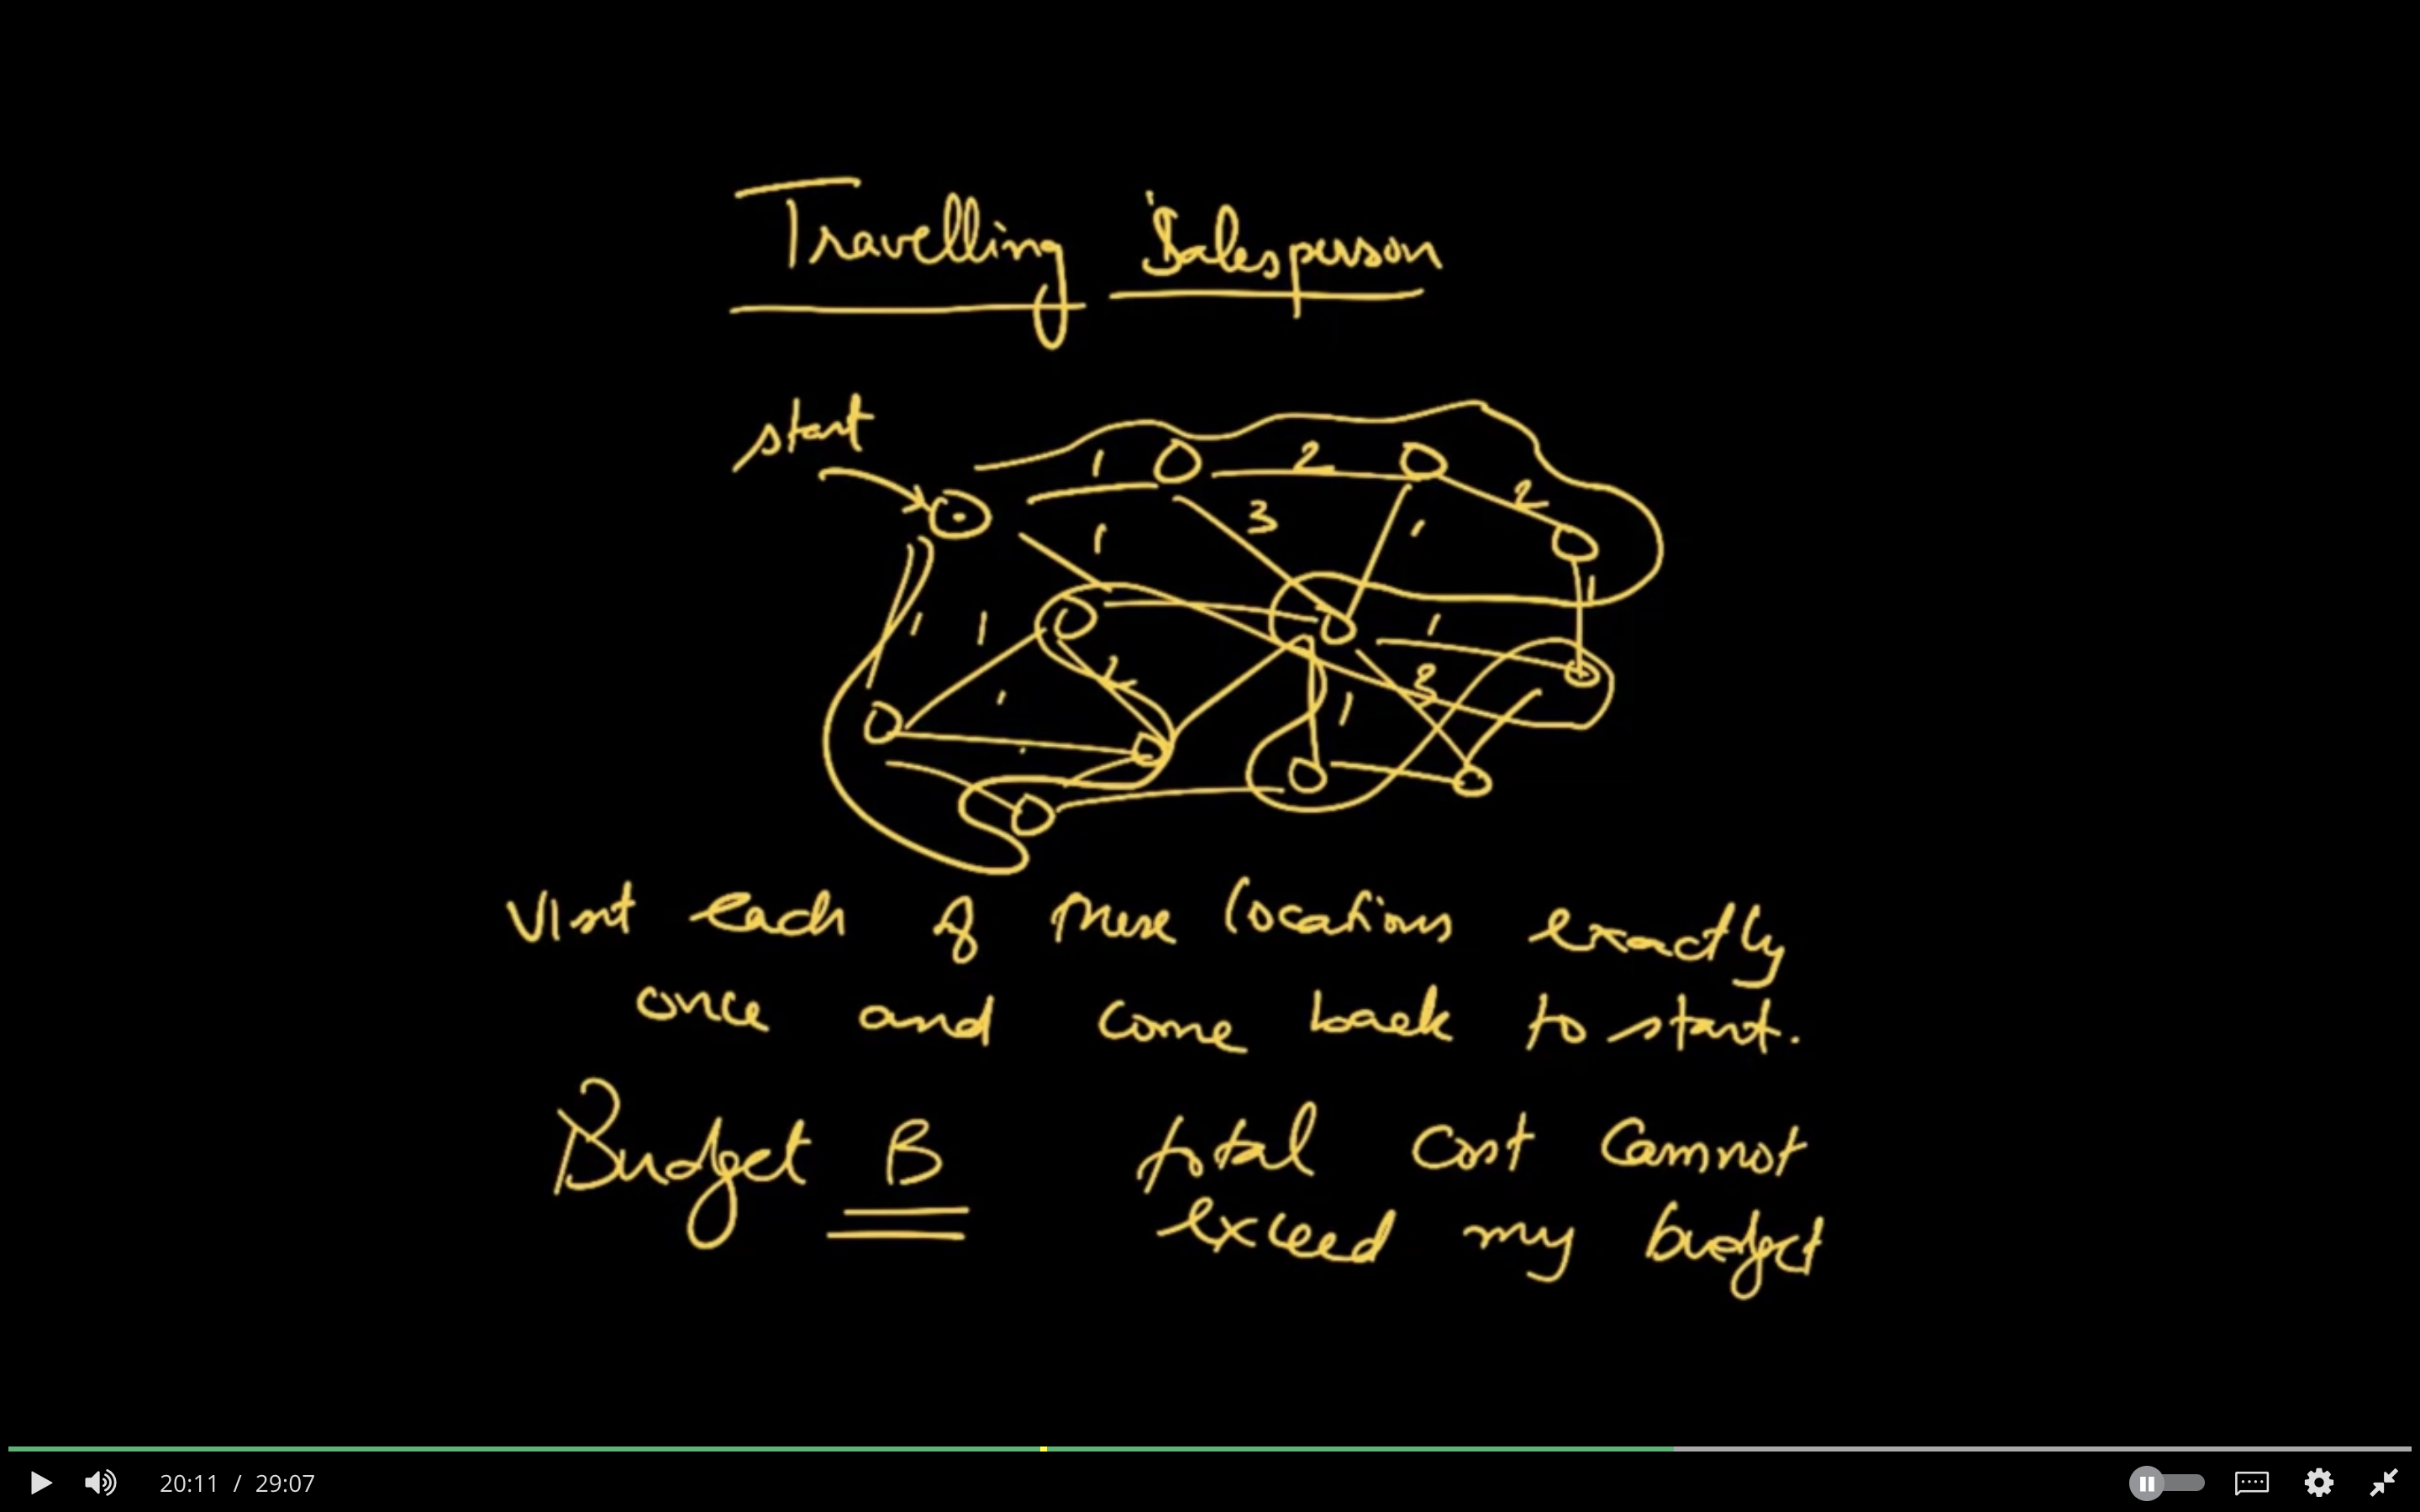 Travelling Salesperson
start
1 2 2
3
1 1
1
1 1 1
2 3
1
1
Visit each of these locations exactly
once and come back to start.
Budget B total cost cannot
exceed my budget
20:11 / 29:07